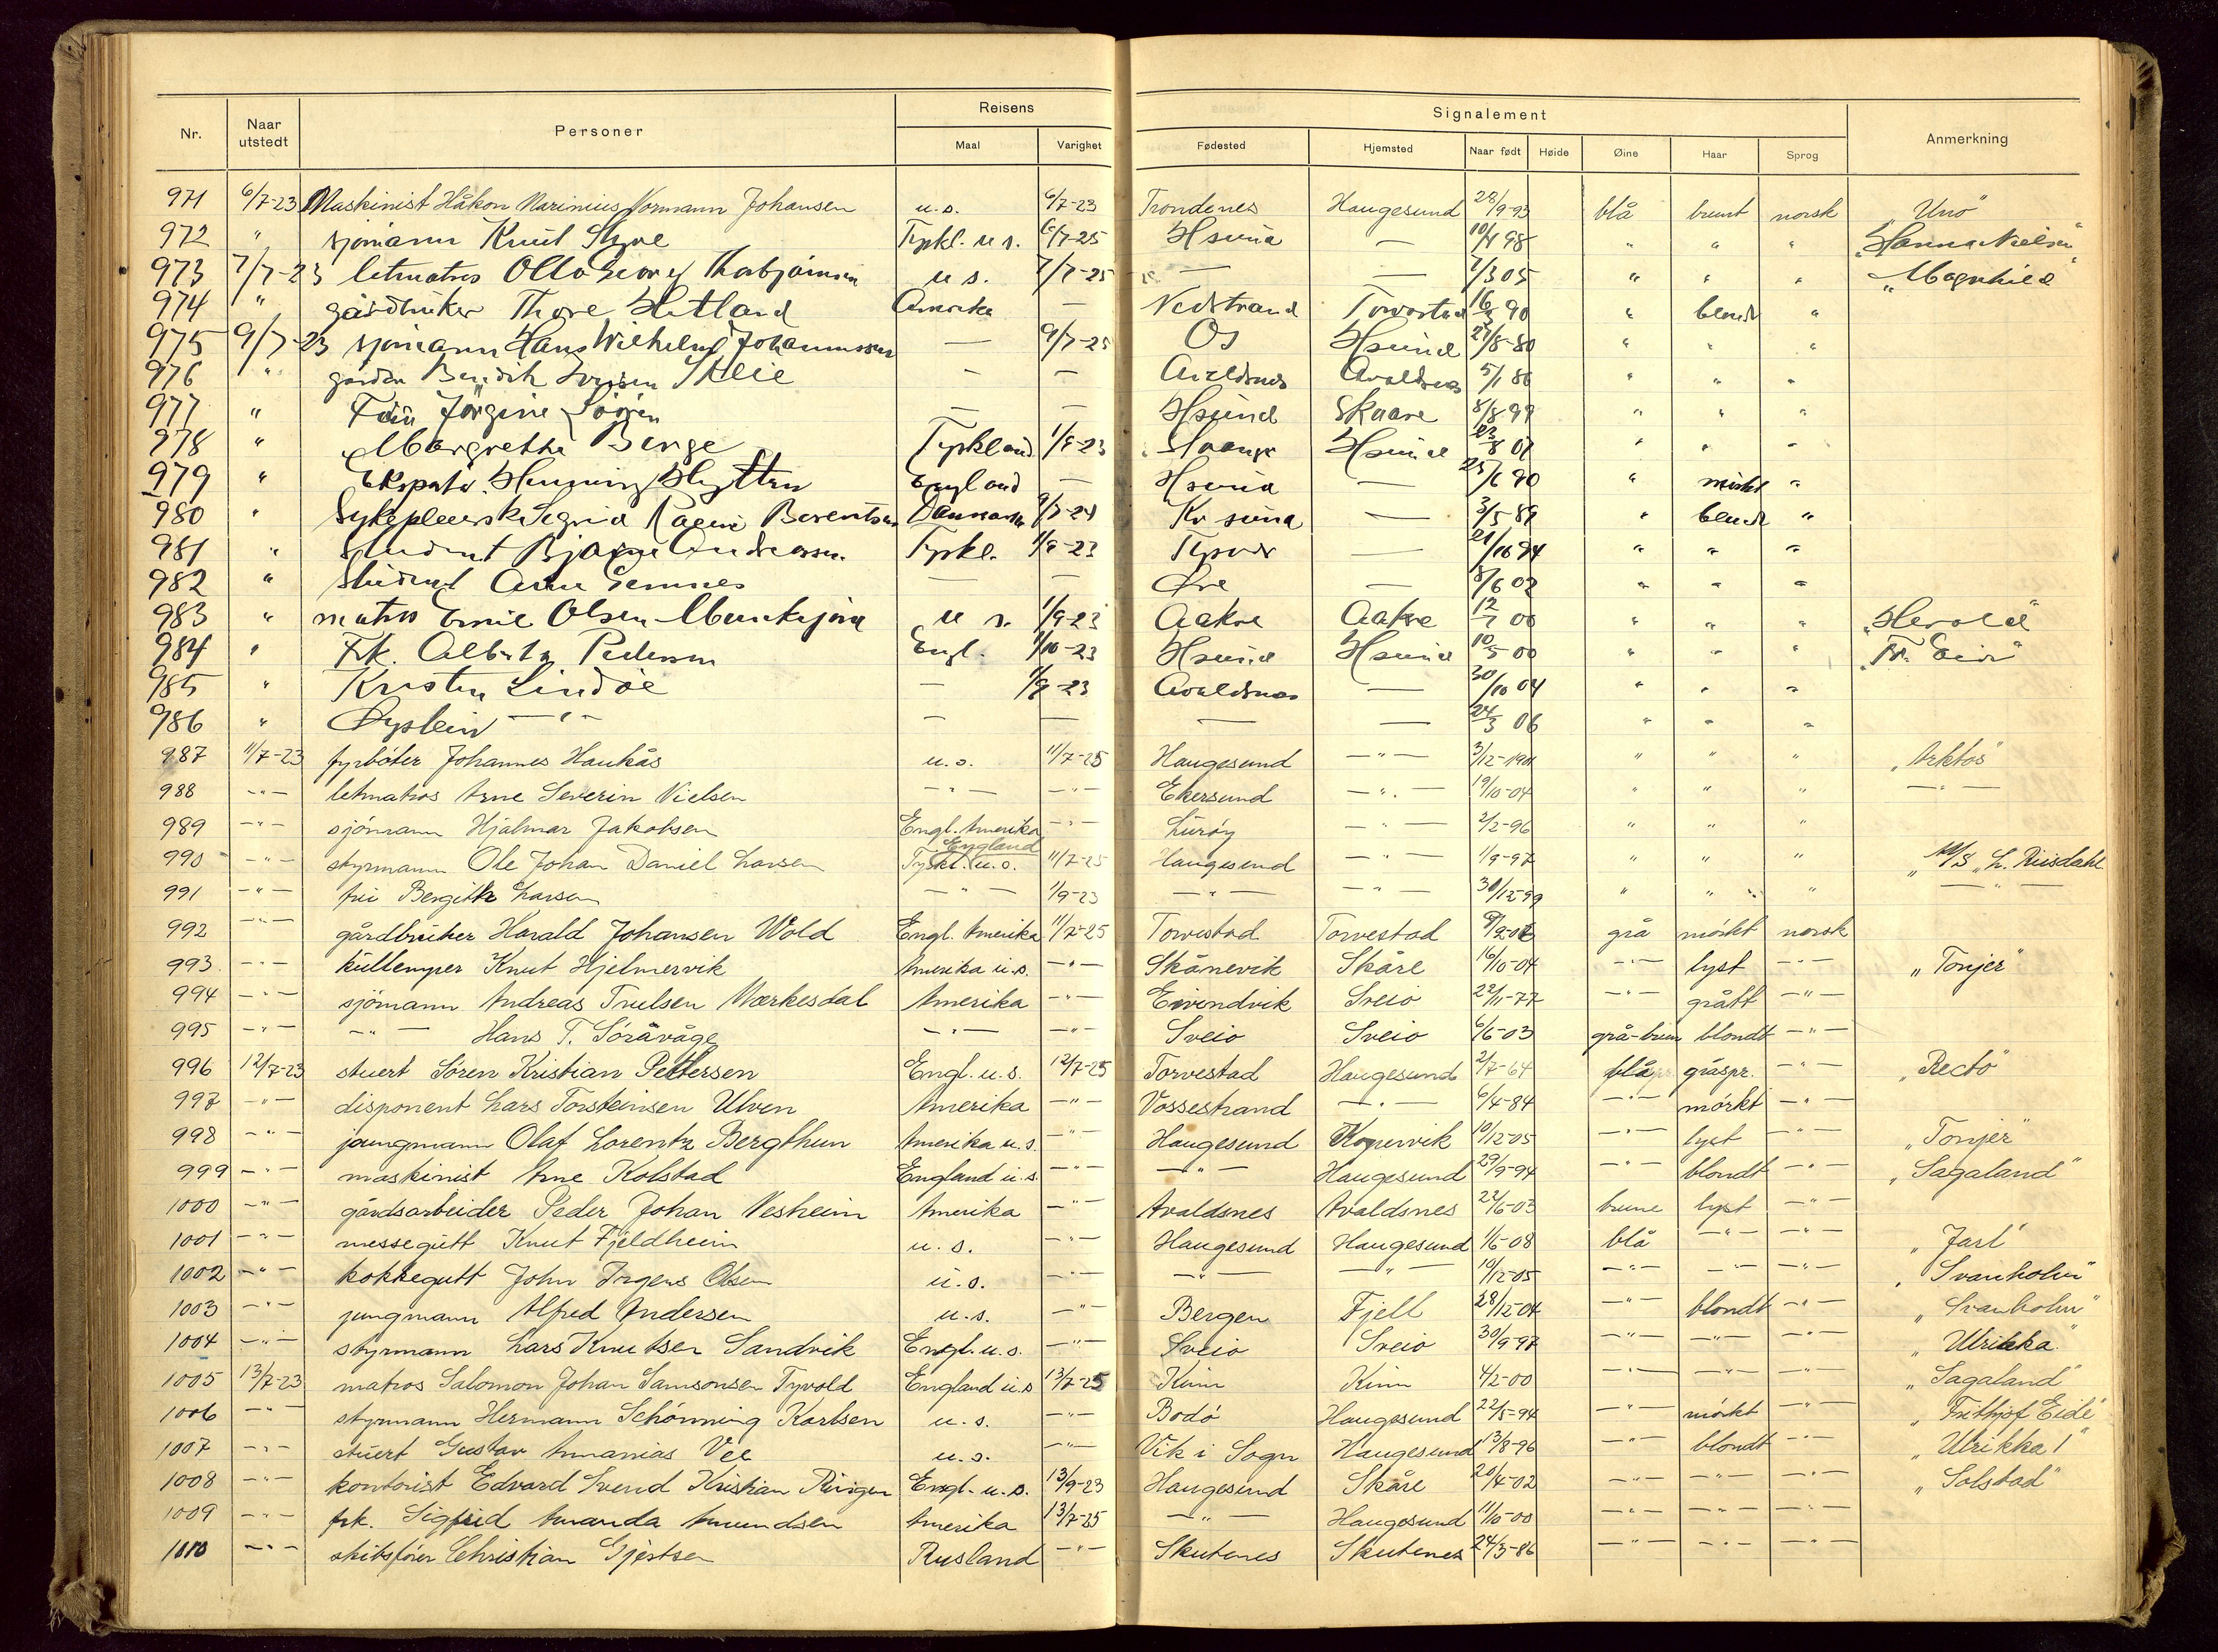 Nr. Naar utstedt Personer Reisens Maal Varighet Signalement Fødested Hjemsted Naar født Høide Øine Haar Sprog Anmerkning
971 6/7-23 Maskinist Håkon Marinius Normann Johansen u.s. 6/7-23 Trondenes Haugesund 28/9-93 blå brunt norsk "Uno"
972 " sjømann Knut Tyskl. u s. 6/7-25 Hsund — 98 " " " "Hanna Nielsen"
973 7/7-23 letmatros Otto Georg Thorbjørnsen u s. 7/7-25 — — 7/3 05 " " " "Magnhild"
974 " gårdbruker Thore Hetland Amerika — Nedstrand Torvestad 90 " blondt "
975 9/7-23 sjømann Hans Wilhelm Johannessen — 9/7-25 Os Hsund 27/8-80 " " "
976 " — — Avaldsnes Avaldsnes 5/1 86 " " "
977 " Fru Jørgine — — Hsund Skaare 8/8-99 " " "
978 " Margrethe Berge Tyskland 1/9-23 Hsund " " "
979 " Henning Hytten England — Hsund — 90 " mørkt "
980 " Sykepleierske Sigrid Berentsen Danmark Kr sund — 3/5-89 " blondt "
981 " Student Bjarne Andreassen Tyskl. 1/9-23 — " " "
982 " Student Arne — — — 8/6 02 " " "
983 " matros Emil Olsen u s. 1/9-23 Aakre Aakre 00 " " " "Herold"
984 " Frk. Alberta Pedersen Engl. 1/10-23 Hsund Hsund 10/5 00 " " "
985 " Kristen Lindøe — 1/9-23 Avaldsnes — 30/10 04 " " "
986 " Øystein — " — — — — — 24/3 06 " " "
987 11/7-23 fyrbøter Johannes Haukås u.s. 11/7-25 Haugesund — " — 3/12-1901 " " " "Arktos"
988 — " — letmatros Arne Severin Nielsen — " — — " — Ekersund — " — 19/10-04 " " " — " —
989 — " — sjømann Hjalmar Jakobsen Engl. Amerika — " — Lurøy — " — 2/2-96 " " "
990 — " — styrmann Ole Johan Daniel Larsen England Tyskl. u.s. 11/7-25 Haugesund — " — 1/9-97 " " " "M/S L. Riisdahl
991 — " — fru Bergithe Larsen — " — 1/9-23 — " — — " — 30/12-99 " " " — " —
992 — " — gårdbruker Harald Johansen Wold Engl. Amerika 11/7-25 Torvestad Torvestad grå mørkt norsk
993 — " — kullemper Knut Hjelmervik Amerika u.s. — " — Skånevik Skåre 16/10-04 — " — lyst — " — "Tonjer"
994 — " — sjømann Andreas Trulsen Værkesdal Amerika — " — Eivindvik Sveio 22/11-77 — " — grått — " —
995 — " — — " — Hans T. Søråvåge — " — — " — Sveio Sveio 6/6-03 grå-brun blondt — " —
996 12/7-23 stuert Søren Kristian Pettersen Engl. u.s. 12/7-25 Torvestad Haugesund 2/7-64 blå gråspr. — " — "Recto"
997 — " — disponent Lars Torsteinsen Ulven Amerika — " — Vossestrand — " — 6/4-84 — " — mørkt — " —
998 — " — jaungmann Olaf Lorentz Bergthun Amerika u.s. — " — Haugesund Kopervik 10/12-05 — " — lyst — " — "Tonjer"
999 — " — maskinist Arne Kolstad England u.s. — " — — " — Haugesund 29/9-94 — " — blondt — " — "Sagaland"
1000 — " — gårdsarbeider Peder Johan Vesheim Amerika — " — Avaldsnes Avaldsnes 22/6-03 brune lyst — " —
1001 — " — messegutt Knut Fjeldheim u.s. — " — Haugesund Haugesund 1/6-08 blå — " — — " — "Jarl"
1002 — " — kokkegutt John Jrgens Olsen u.s. — " — — " — — " — 19/12-05 — " — — " — — " — "Svanholm"
1003 — " — jungmann Alfred Andersen u.s. — " — Bergen Fjell 28/12-04 — " — blondt — " — "Svanholm"
1004 — " — styrmann Lars Knutsen Sandvik Engl. u.s. — " — Sveio Sveio 30/9-97 — " — — " — — " — "Ulrikka"
1005 13/7-23 matros Salomon Johan Samsonsen Tyvold England u.s 13/7-25 Kinn Kinn 4/2-00 — " — — " — — " — "Sagaland"
1006 — " — styrmann Hermann Schønning Karlsen u.s. — " — Bodø Haugesund 22/5-94 — " — mørkt — " — "Frithjof Eide"
1007 — " — stuert Gustav Ananias Vee u.s. — " — Vik i Sogn Haugesund 13/8-96 — " — blondt — " — "Ulrikka 1"
1008 — " — kontorist Edvard Svend Kristian Ringen Engl. u.s. 13/9-23 Haugesund Skåre 20/4-02 — " — — " — — " — "Solstad"
1009 — " — frk. Sigfrid Amanda Amundsen Amerika 13/7-25 — " — Haugesund 11/10-00 — " — — " — — " —
1010 — " — skibsfører Christian Gjertsen Rusland — " — Skutenes Skutenes 24/3-86 — " — — " — — " —